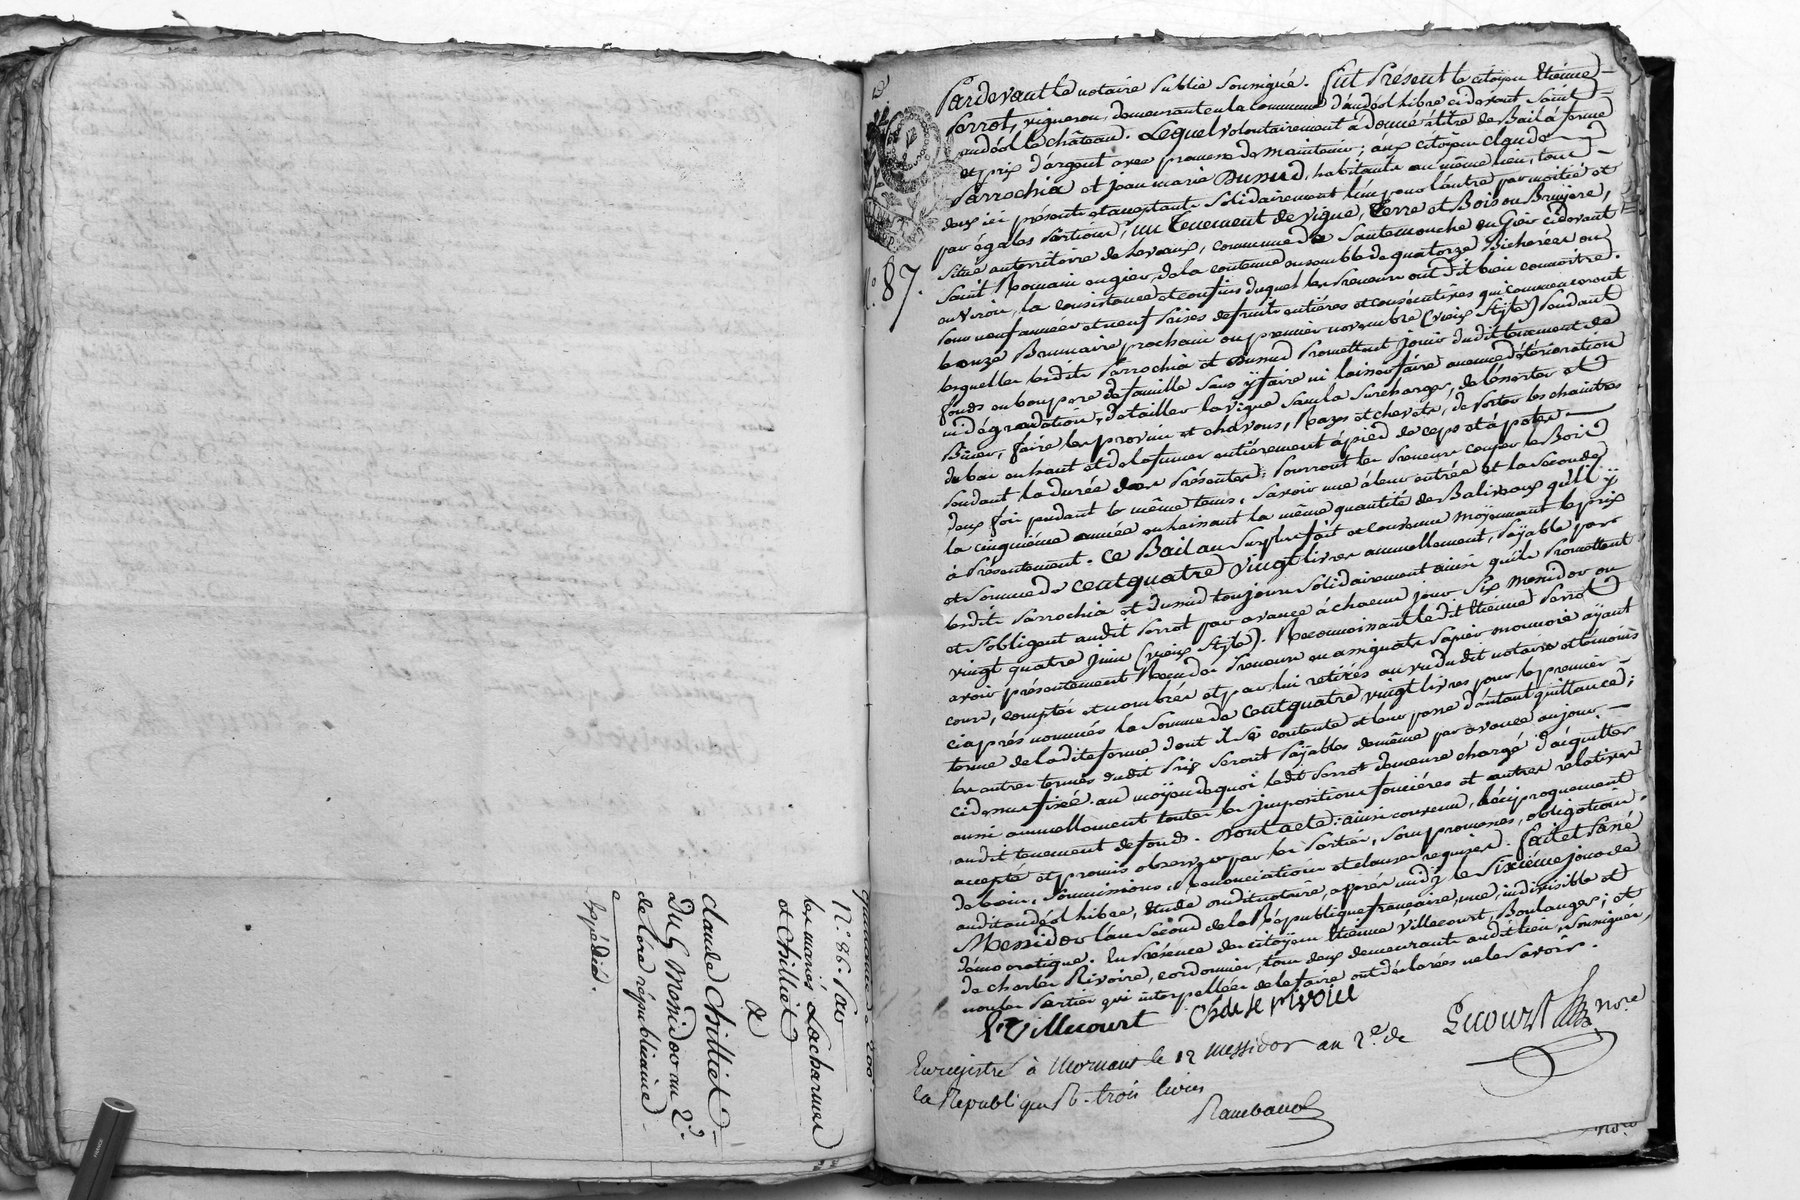 Quittance de 200#
N.° 86. Par
les mariés Lacharmes
et Chilliet
À
Claude Chilliet
Du 5 Messidor an 2.d
de l'ère républicaine
Expédié.
N.° 87.
Pardevant le notaire Public soussigné. fut Présent le citoyen Etienne
Perrot, vigneron, demeurant en la commune d'andéol libre ci devant Saint
andéol le château. Lequel volontairement a donné à titre de Bail à ferme
et prix d'argent avec promesse de maintenir; aux citoyens claude
Parrochia et jean marie Dumud, habitants au même lieu, tous
deux ici présents et acceptants solidairement l'un pour l'autre par moitié et
par égales Portions, un tenement de vigne, terre et Bois ou Bruyere,
situé au territoire de Levaux, commune de Santemouche en Gier ci devant
Saint Romain en gier, de la contenue ensemble de quatorze Bicherées ou
environ, la consistance et confins duquel les Preneurs ont dit bien connoitre.
Pour neuf années et neuf Prises de fruits entières et consécutives qui commenceront
le onze Brumaire prochain ou premier novembre (vieux Style) Pendant
lesquelles lesdits Parrochia et Dumud Promettent jouir dudit tenement de
fonds en bon pere de famille sans y faire ni laisser faire aucune détérioration
ni dégradation, de tailler la vigne sans la Surcharger, de l'émotter et
Biner, faire les provins et chavons, Razes et chevets, de Porter les chaintres
du bas en haut et de la fumer entièrement à pied de ceps et à potes
Pendant la durée des Présentes; Pourront les Preneurs couper le Bois
deux fois pendant le même tems, savoir une à leur entrée et la seconde
la cinquième année en laissant la même quantité de Baliveaux qu'il y
a Présentement. Ce Bail au Surplus fait et convenu moyennant le prix
et somme de cent quatre vingt livres annuellement, Payable par
lesdits Parrochia et Dumud toujours solidairement ainsi qu'ils Promettent
et s'obligent audit Perrot par avance à chacun jour Six Messidor ou
vingt quatre juin (vieux Style). Reconnoissant ledit Etienne Perrot
avoir présentement Reçu des Preneurs en assignats Papier monnoie ayant
cours, comptés et nombrés et par lui retirés au vu dudit notaire et témoins
ciaprès nommés la Somme de cent quatre vingt livres pour le premier
terme de ladite ferme dont il se contente et leur passe d'autant quittance;
les autres termes dudit Prix seront Payables de même par avance au jour
ci dessus fixé. au moyen de quoi ledit Perrot demeure chargé d'acquitter
aussi annuellement toutes les jmpositions foncières et autres relatives
audit tenement de fonds. Dont acte: ainsi convenu, Réciproquement
accepté et promis observer par les Parties, sous promesses, obligation
de biens, soumissions, Renonciations et clauses requises. fait et Passé
audit andéol libre, Etude dudit notaire, après midi le Sixième jour de
Messidor l'an Second de la République française, une, indivisible et
démocratique. En Présence des citoyens Etienne Villecourt, Boulanger; et
de charles Rivoire, cordonnier, tous deux demeurants audit lieu, soussignés,
non les Parties qui interpellées de le faire ont déclarées ne le savoir.
E Villecourt Charle rivoire
Lecourt nore.
Enregistré à Mornant le 12 messidor an 2e. de
la République R. trois livres
Rambaud
nore